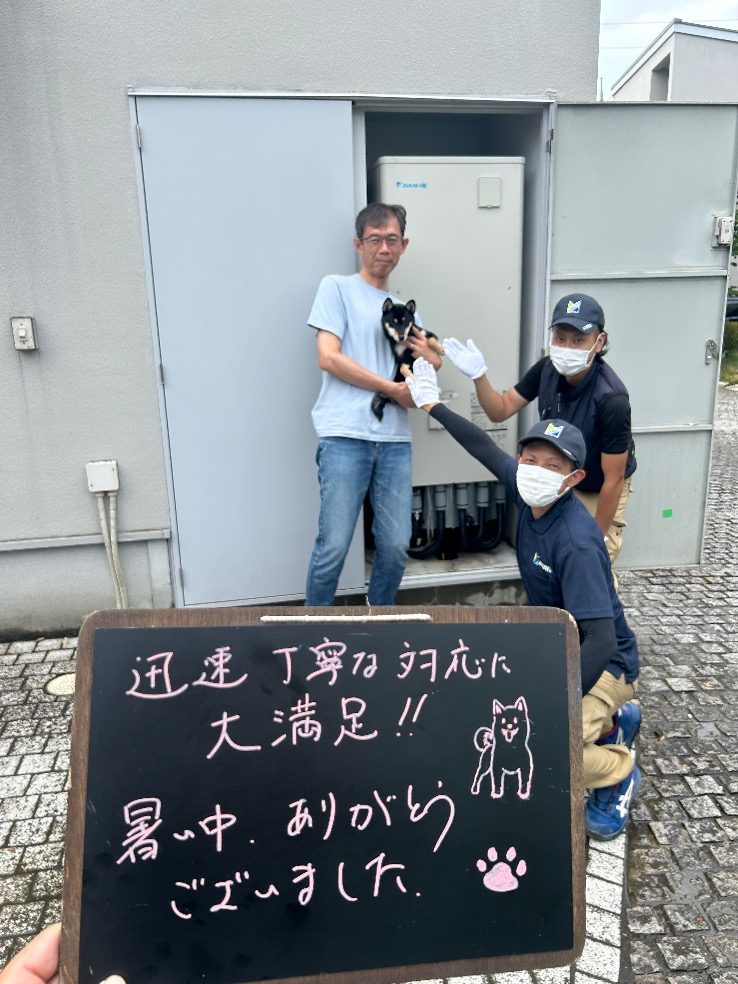 DAIKIN
迅速 丁寧な 対応に
大満足!!
暑い中、ありがとう
ございました.